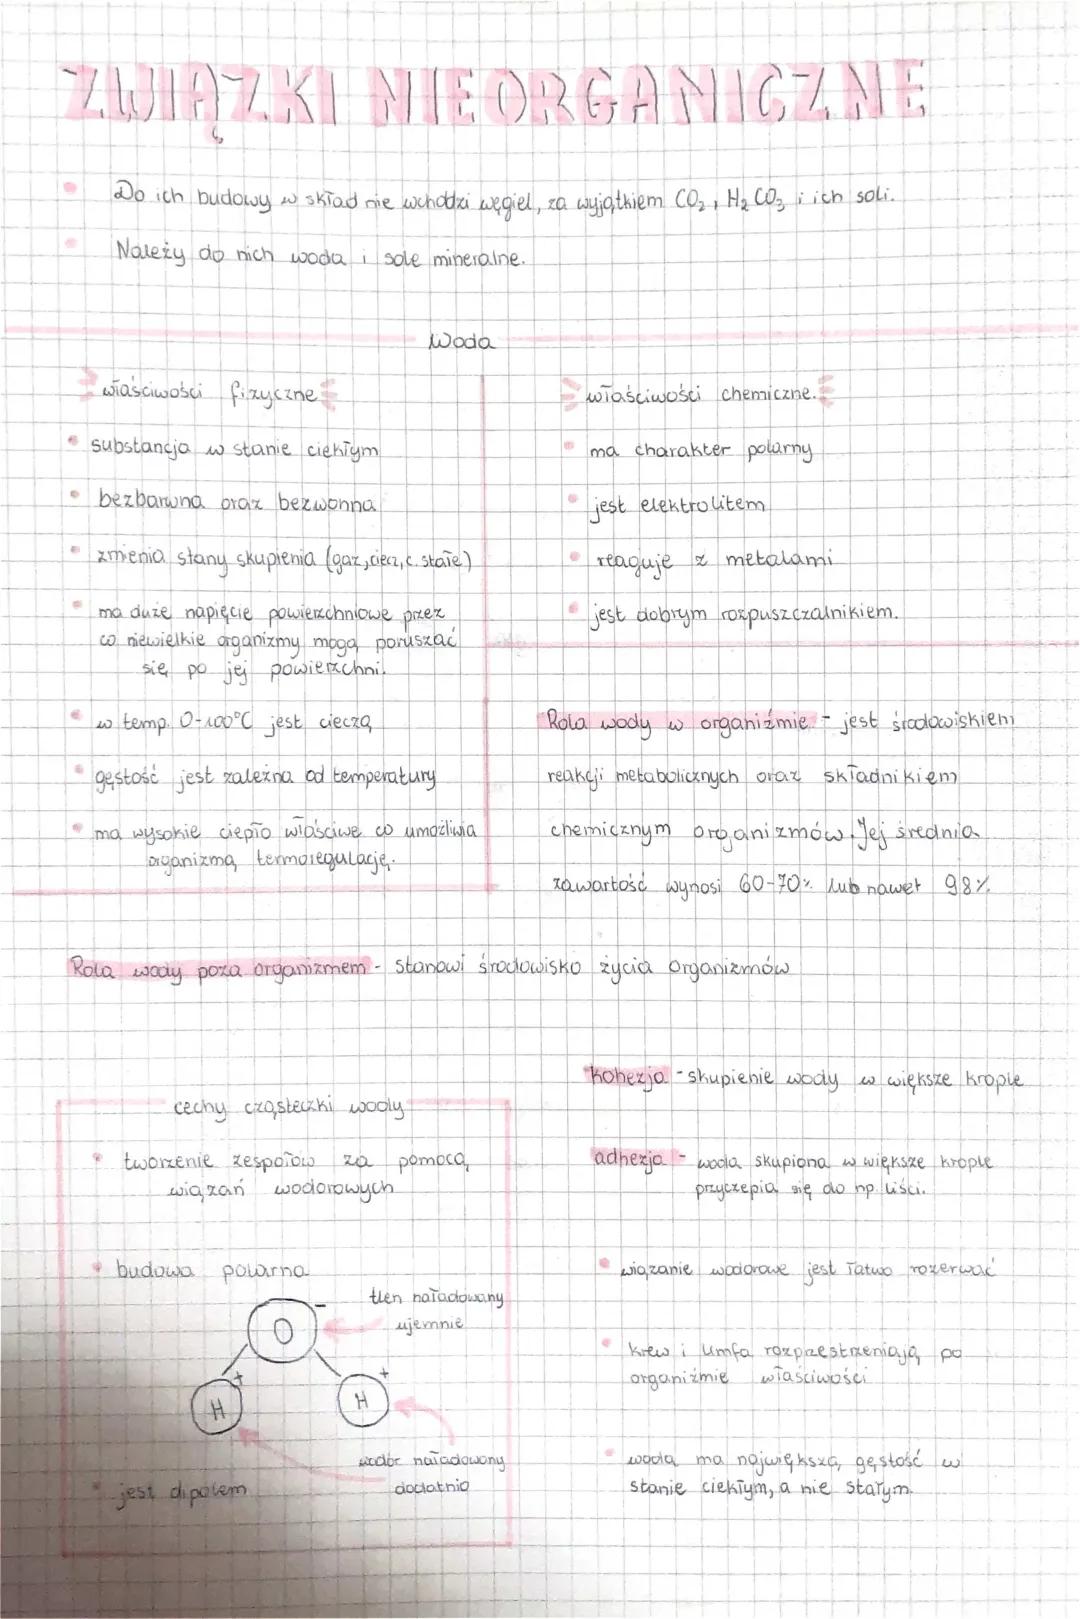 ZWIĄZKI NIEORGANICZNE
Do ich budowy w skład nie wchodzi węgiel, za wyjątkiem CO₂, H₂CO₃ i ich soli.
Należy do nich woda i sole mineralne.
Woda
właściwości fizyczne
substancja w stanie ciekłym
bezbarwna oraz bezwonna
zmienia stany skupienia (gaz, ciecz, c. stałe)
ma duże napięcie powierzchniowe przez
co niewielkie organizmy mogą poruszać
się po jej powierzchni.
w temp. 0-100°C jest cieczą
gęstość jest zależna od temperatury
ma wysokie ciepło właściwe co umożliwia
organizmą termoregulację.
właściwości chemiczne.
ma charakter polarny
jest elektrolitem
reaguje z metalami
jest dobrym rozpuszczalnikiem.
Rola wody w organiźmie - jest środowiskiem
reakcji metabolicznych oraz składnikiem
chemicznym organizmów. Jej średnia
zawartość wynosi 60-70% lub nawet 98%.
Rola wody poza organizmem - stanowi środowisko życia organizmów
cechy cząsteczki wody
tworzenie zespołów za pomocą
wiązań wodorowych
budowa polarna
tlen naładowany
ujemnie
O
-
H
+
H
+
wodór naładowany
dodatnio
jest dipolem
kohezja - skupienie wody w większe krople
adhezja - woda skupiona w większe krople
przyczepia się do np. liści.
wiązanie wodorowe jest łatwo rozerwać
krew i limfa rozprzestrzeniają po
organiźmie właściwości
woda ma największą gęstość w
stanie ciekłym, a nie stałym.